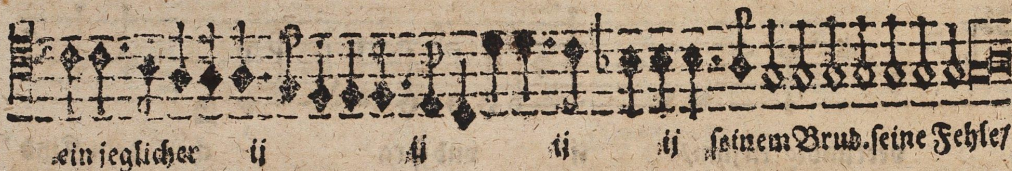 ein jeglicher ij ij ij ij seinem Brud. seine Fehle/